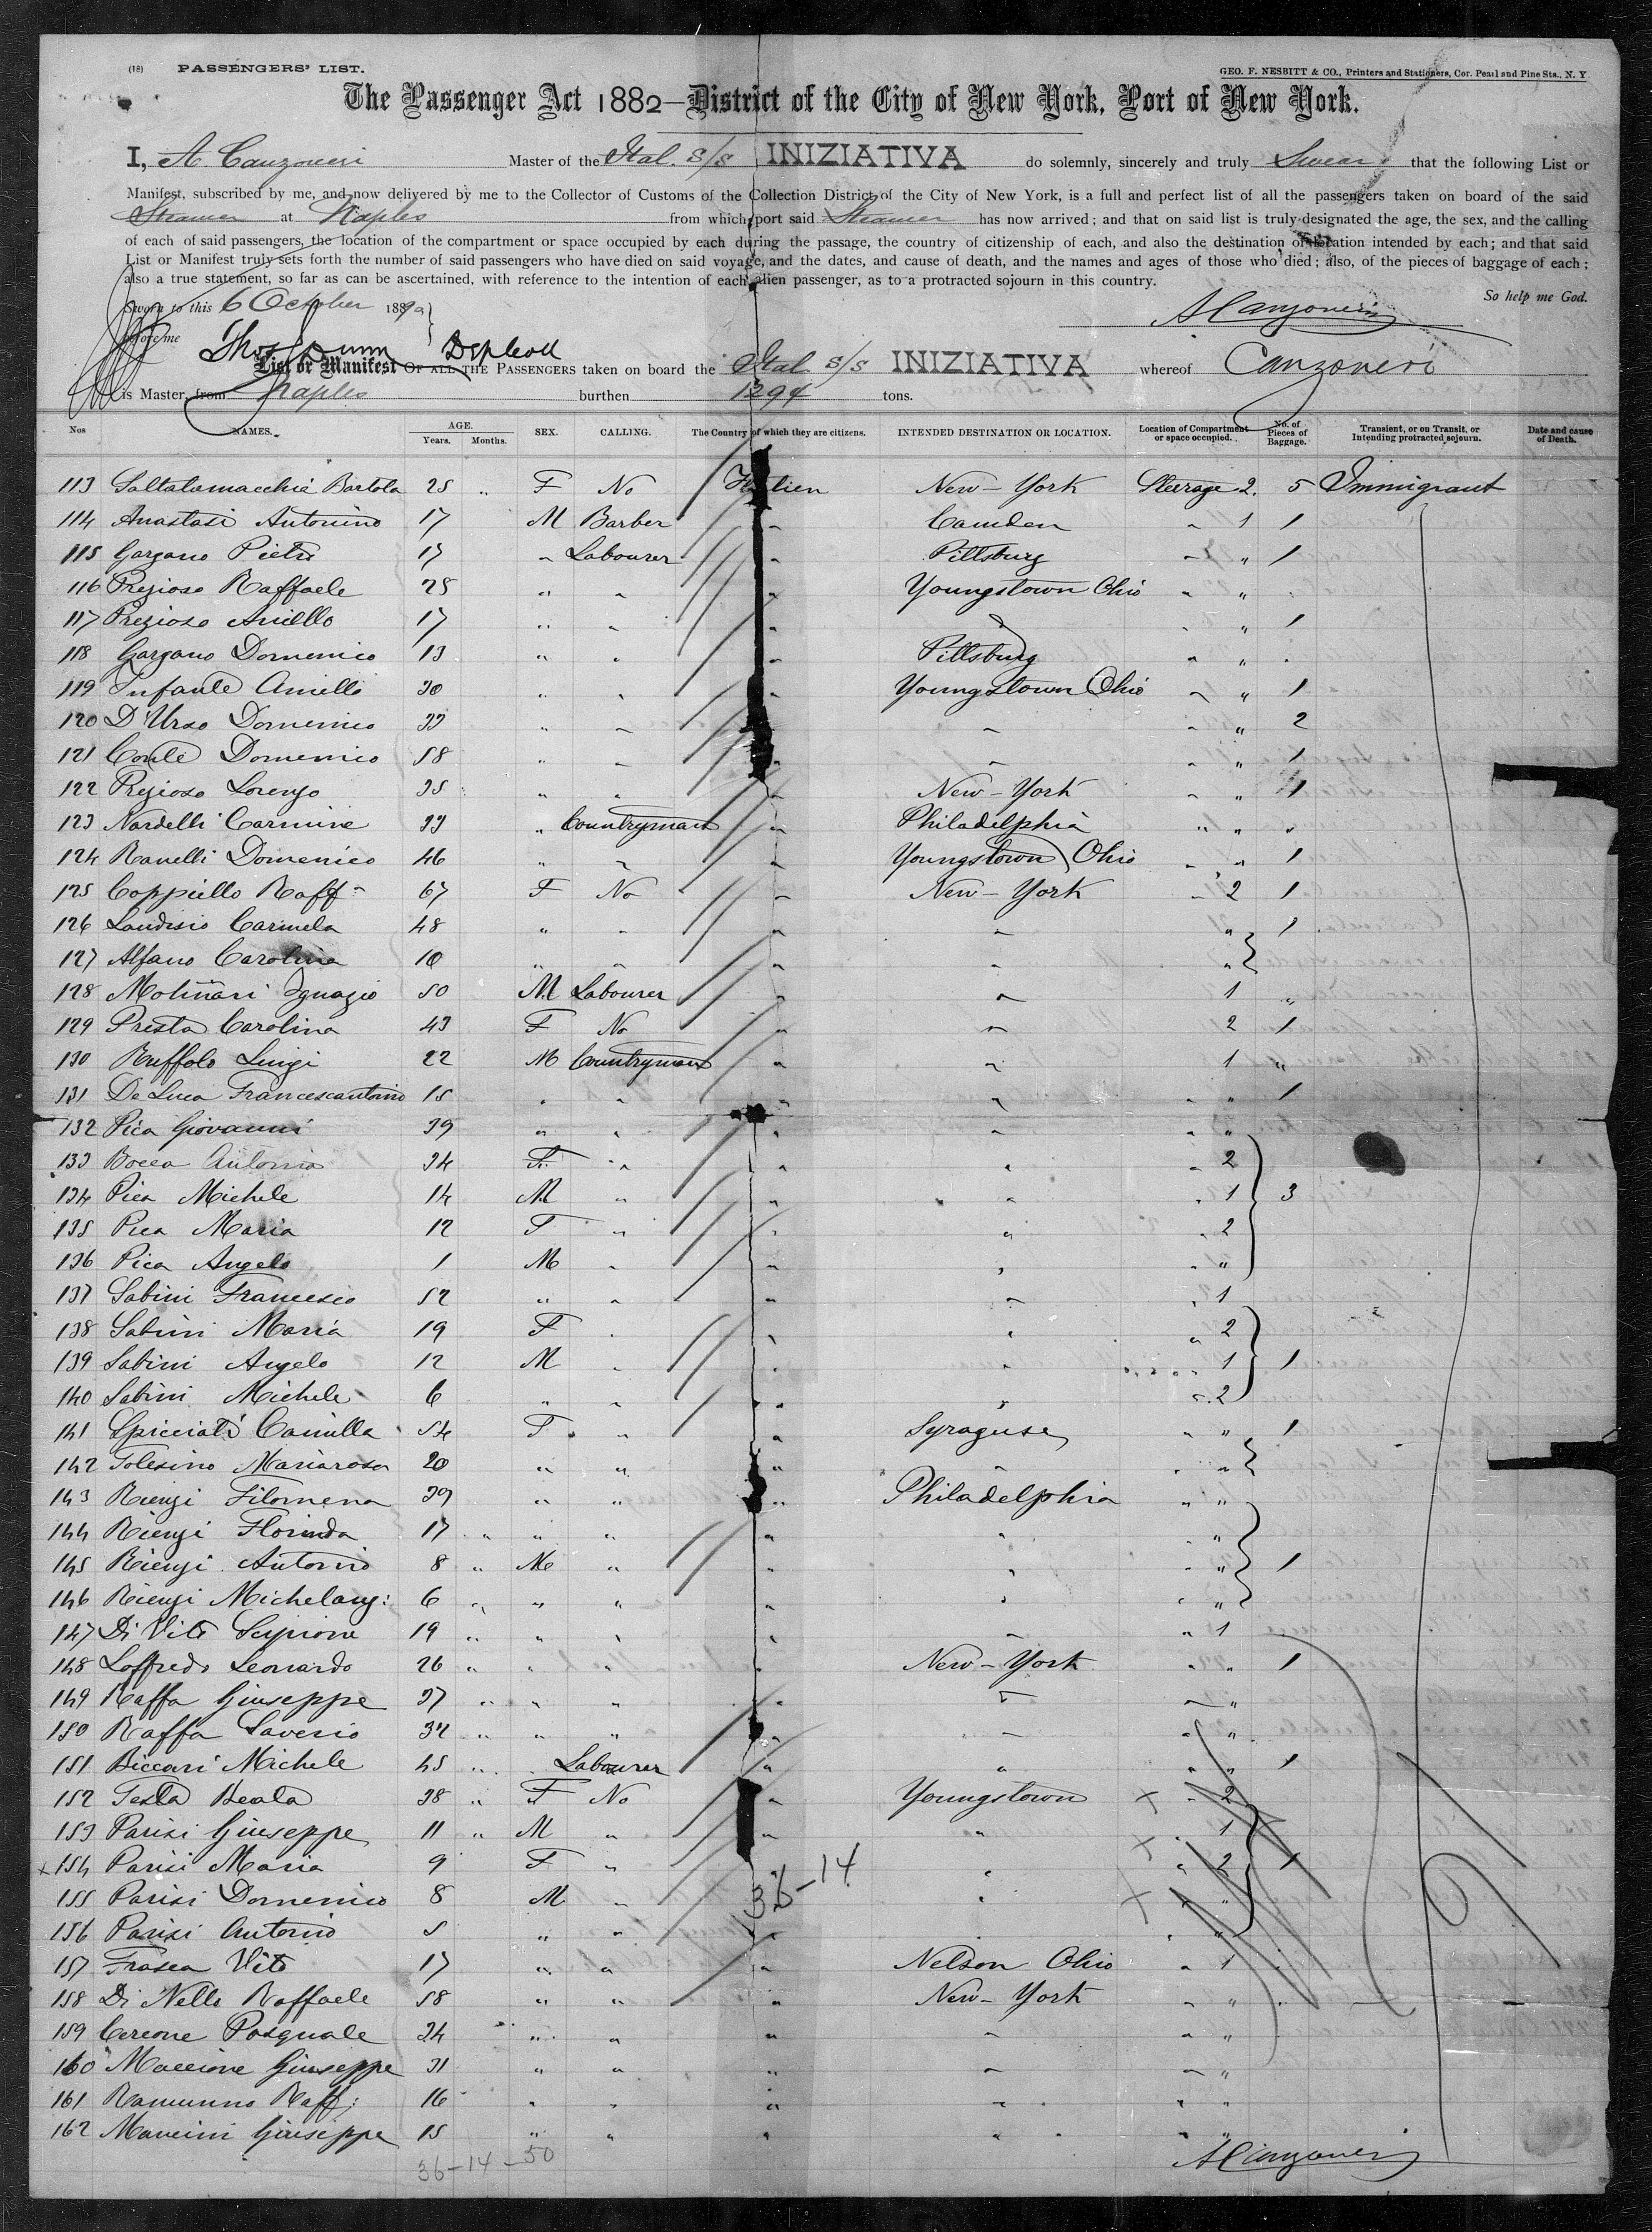 (18) PASSENGERS' LIST.
GEO. F. NESBITT & CO., Printers and Stationers, Cor. Pearl and Pine Sts., N. Y.
The Passenger Act 1882—District of the City of New York, Port of New York.
I, A Canzoneri Master of the Ital. S/S INIZIATIVA do solemnly, sincerely and truly Swear that the following List or
Manifest, subscribed by me, and now delivered by me to the Collector of Customs of the Collection District of the City of New York, is a full and perfect list of all the passengers taken on board of the said
Steamer at Naples from which port said Steamer has now arrived; and that on said list is truly designated the age, the sex, and the calling
of each of said passengers, the location of the compartment or space occupied by each during the passage, the country of citizenship of each, and also the destination or location intended by each; and that said
List or Manifest truly sets forth the number of said passengers who have died on said voyage, and the dates, and cause of death, and the names and ages of those who died; also, of the pieces of baggage of each;
also a true statement, so far as can be ascertained, with reference to the intention of each alien passenger, as to a protracted sojourn in this country.
So help me God.
Sworn to this 6 October 1890
before me
A Canzoneri
Thos Dunn
List or Manifest OF ALL THE PASSENGERS taken on board the Ital S/S INIZIATIVA whereof Canzoneri
is Master, from Naples burthen 1294 tons.
Nos NAMES. AGE. Years. Months. SEX. CALLING. The Country of which they are citizens. INTENDED DESTINATION OR LOCATION. Location of Compartment or space occupied. No. of Pieces of Baggage. Transient, or on Transit, or Intending protracted sojourn. Date and cause of Death.
113 Saltalamacchia Bartola 25 " F No Italien New-York Steerage 2. 5 Immigrant
114 Anastasi Antonino 17 M Barber " Camden " 1 1
115 Gargano Pietro 17 " Labourer " Pittsburg " " 1
116 Prezioso Raffaele 25 " " " Youngstown Ohio " "
117 Prezioso Aniello 17 " " " " " 1
118 Gargano Domenico 13 " " " Pittsburg " "
119 Infante Aniello 30 " " " Youngstown Ohio " " 1
120 D'Urso Domenico 33 " " " " " " 2
121 Conte Domenico 58 " " " " " " 1
122 Prezioso Lorenzo 35 " " " New-York " " 1
123 Nardelli Carmine 33 " Countryman " Philadelphia " " "
124 Ranelli Domenico 46 " " " Youngstown Ohio " " 1
125 Coppiello Raff 67 F No " New-York " 2 1
126 Landisio Carmela 48 " " " " " 1
127 Alfano Carolina 10 " " " " "
128 Molinari Ignazio 50 M Labourer " " 1 "
129 Presta Carolina 43 F No " " 2 1
130 Ruffolo Luigi 22 M Countryman " " 1 "
131 De Luca Francescantonio 15 " " " " " " 1
132 Pica Giovanni 39 " " " " " "
133 Bocca Antonia 34 F " " " " 2
134 Pica Michele 14 M " " " " 1 3
135 Pica Maria 12 F " " " " 2
136 Pica Angelo 1 M " " " " "
137 Sabini Francesco 52 " " " " " 1
138 Sabini Maria 19 F " " " " 2
139 Sabini Angelo 12 M " " " " 1 1
140 Sabini Michele 6 " " " " " 2
141 Camilla 54 F " " Syraguse " " 1
142 Tolesino Mariarosa 20 " " " " " "
143 Rienzi Filomena 39 " " " Philadelphia " "
144 Rienzi Florinda 17 " " " " " " "
145 Rienzi Antonio 8 " M " " " " " 1
146 Rienzi Michelang: 6 " " " " " " "
147 Di Vito Scipione 19 " " " " " " 1
148 Loffredo Leonardo 26 " " " " New-York " " 1
149 Raffa Giuseppe 37 " " " " " " "
150 Raffa Saverio 34 " " " " " " "
151 Biccari Michele 45 " " Labourer " " " " 1
152 Testa Beata 38 " F No " Youngstown x " 2
153 Parisi Giuseppe 11 " M " " " " 1
x 154 Parisi Maria 9 F " " " x " 2 1
155 Parisi Domenico 8 M " 36-14 " x " "
156 Parisi Antonio 5 " " " "
157 Frasca Vito 17 " " " Nelson Ohio " 1
158 Di Nello Raffaele 58 " " " New-York " "
159 Cercone Pasquale 24 " " " " " "
160 Maccione Giuseppe 31 " " " " " "
161 Ramunno Raff: 16 " " " " " "
162 Mancini Giuseppe 15 " " " " " "
36-14-50
A Canzoneri